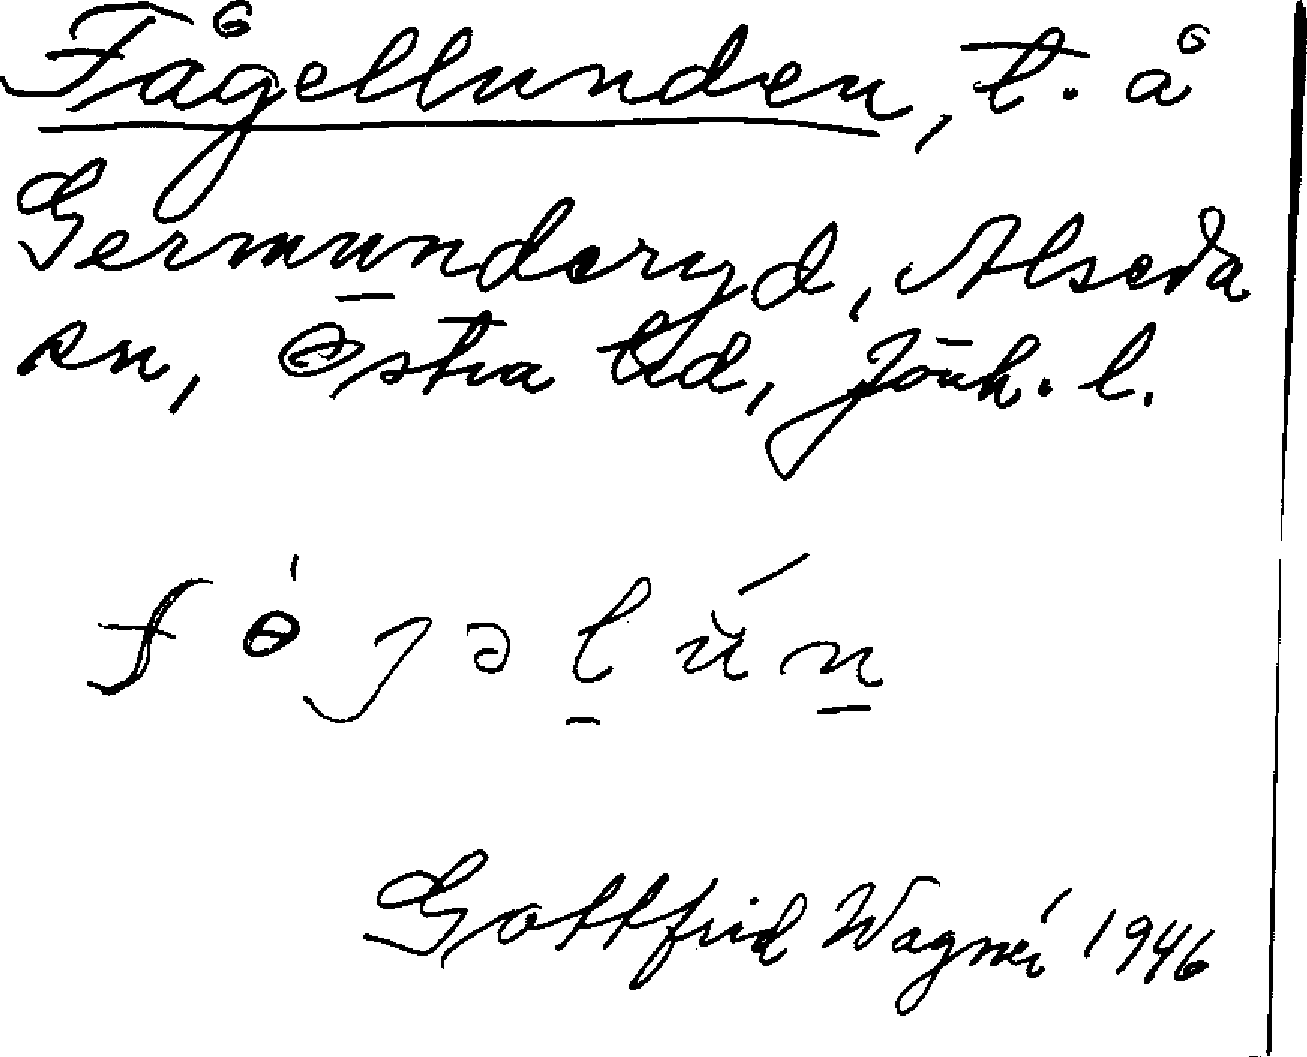 Fågellunden, t. å
Germunderyd, Alseda
sn, Östra hd, Jönk. l.
fɵ́ȷəl̠ún̠
Gottfrid Wagnér 1946